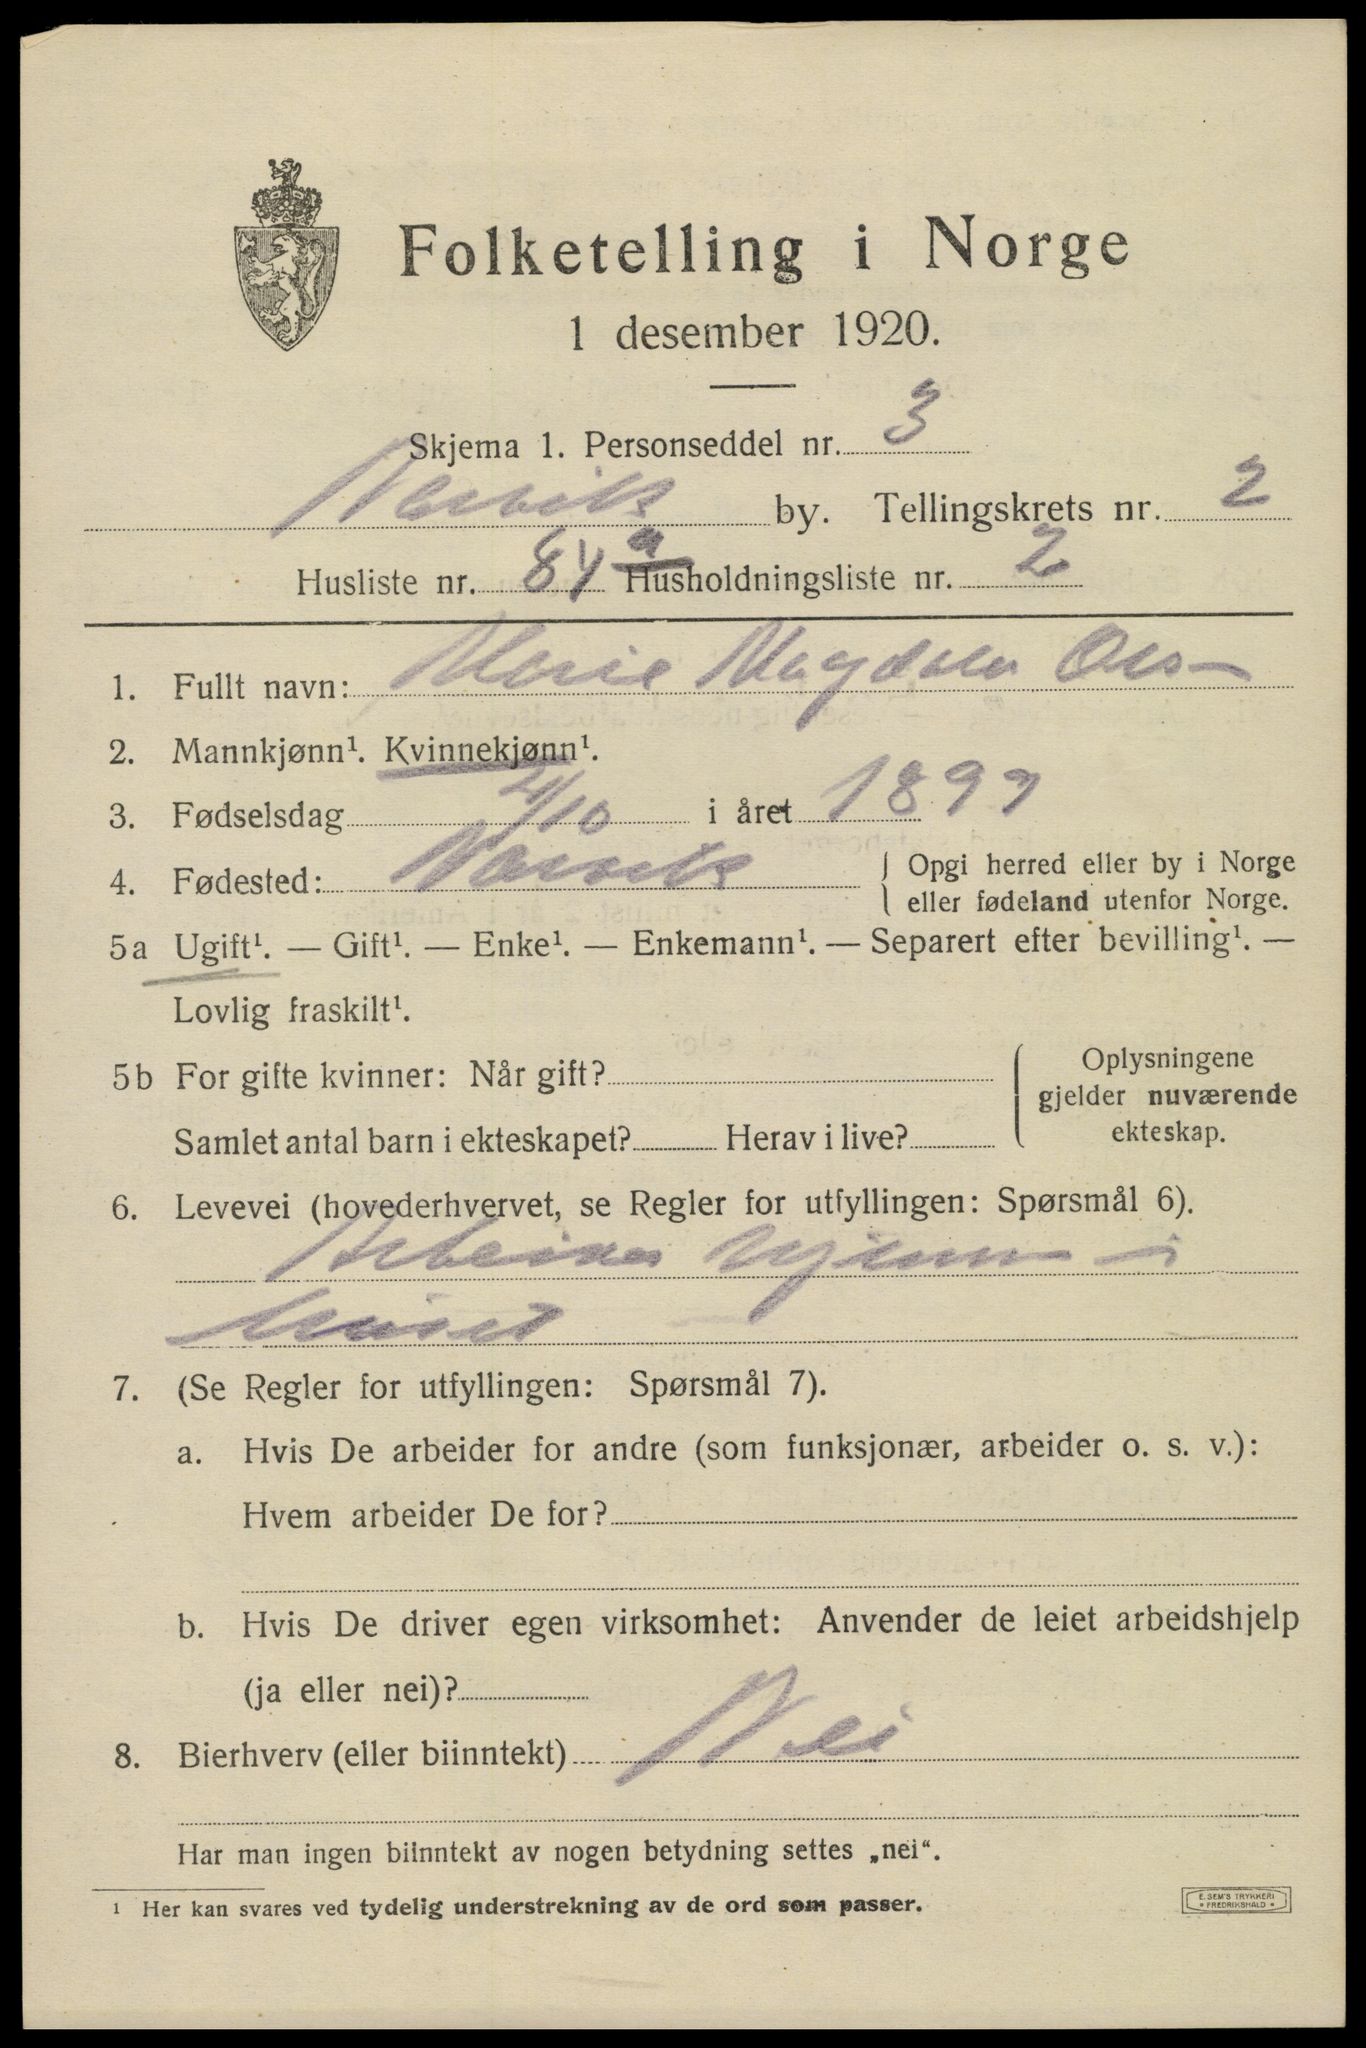 Folketelling i Norge
1 desember 1920.
Skjema 1. Personseddel nr. 3
Narvik by. Tellingskrets nr. 2
Husliste nr. 84 a Husholdningsliste nr. 2
1. Fullt navn: Marie Magdalen
2. Mannkjønn¹. Kvinnekjønn¹.
3. Fødselsdag /10 i året 1899
4. Fødested: Narvik { Opgi herred eller by i Norge
eller fødeland utenfor Norge.
5a Ugift¹. — Gift¹. — Enke¹. — Enkemann¹. — Separert efter bevilling¹. —
Lovlig fraskilt¹.
5b For gifte kvinner: Når gift? { Oplysningene
gjelder nuværende
Samlet antal barn i ekteskapet? Herav i live? ekteskap.
6. Levevei (hovederhvervet, se Regler for utfyllingen: Spørsmål 6).
i
huset
7. (Se Regler for utfyllingen: Spørsmål 7).
a. Hvis De arbeider for andre (som funksjonær, arbeider o. s. v.):
Hvem arbeider De for?
b. Hvis De driver egen virksomhet: Anvender de leiet arbeidshjelp
(ja eller nei)?
8. Bierhverv (eller biinntekt) Nei
Har man ingen biinntekt av nogen betydning settes „nei“.
¹ Her kan svares ved tydelig understrekning av de ord som passer.
E. SEM'S TRYKKERI
* FREDRIKSHALD *